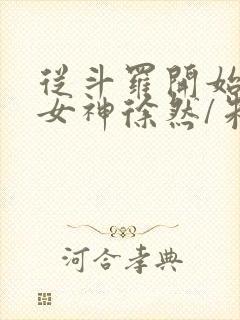 從斗羅開始
女神徐然/
河合孝典